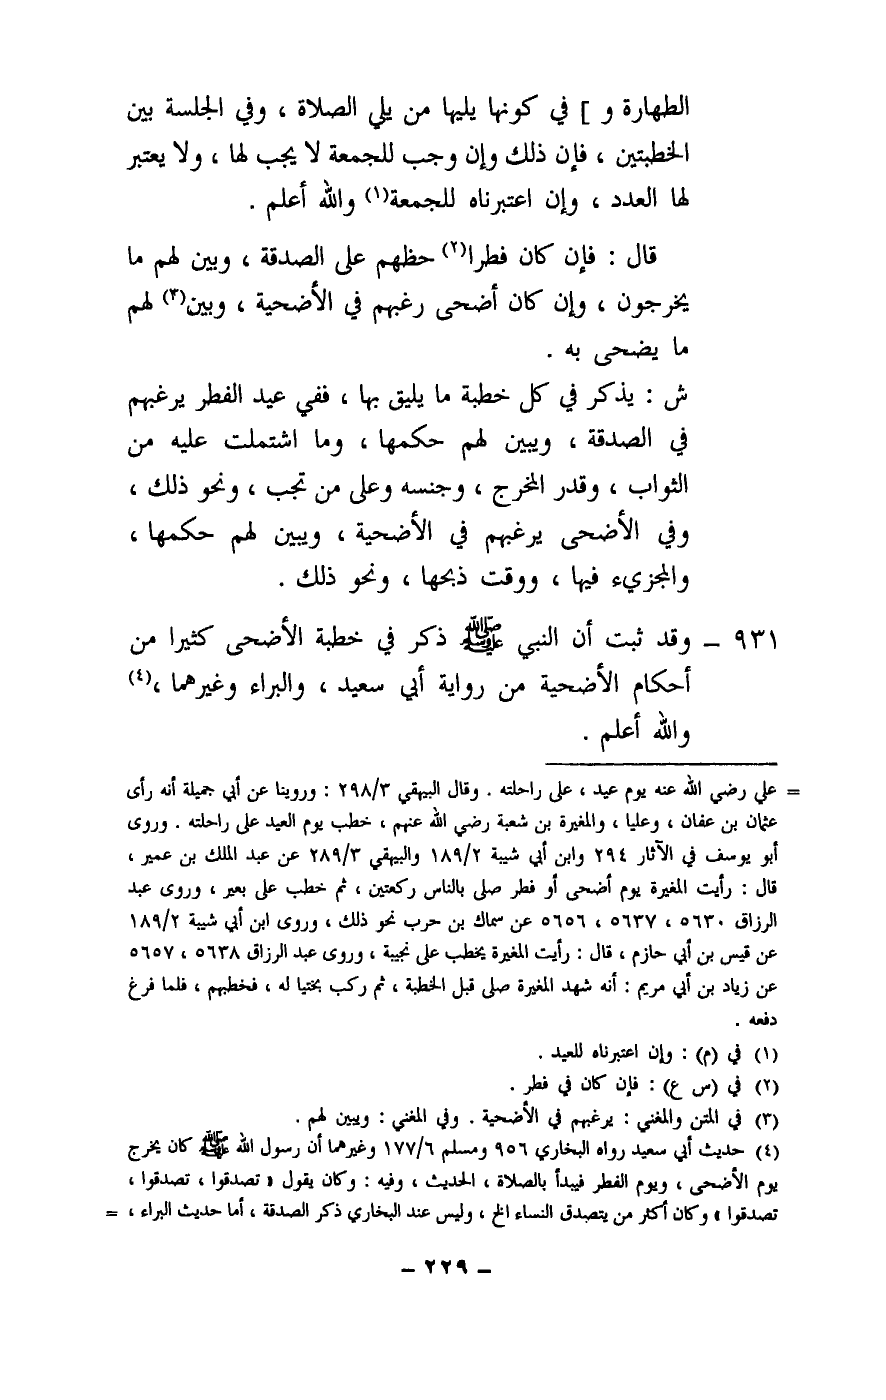 الطهارة و ] في كونها يليها من يلي الصلاة ، وفي الجلسة بين
الخطبتين ، فإن ذلك وإن وجب للجمعة لا يجب لها ، ولا يعتبر
لها العدد ، وإن اعتبرناه للجمعة(١) والله أعلم .
قال : فإن كان فطرا(٢) حظهم على الصدقة ، وبين لهم ما
يخرجون ، وإن كان أضحى رغبهم في الأضحية ، وبين(٣) لهم
ما يضحى به .
ش : يذكر في كل خطبة ما يليق بها ، ففي عيد الفطر يرغبهم
في الصدقة ، ويبين لهم حكمها ، وما اشتملت عليه من
الثواب ، وقدر المخرج ، وجنسه وعلى من تجب ، ونحو ذلك ،
وفي الأضحى يرغبهم في الأضحية ، ويبين لهم حكمها ،
والمجزيء فيها ، ووقت ذبحها ، ونحو ذلك .
٩٣١ – وقد ثبت أن النبي ﷺ ذكر في خطبة الأضحى كثيرا من
أحكام الأضحية من رواية أبي سعيد ، والبراء وغيرهما ،(٤)
والله أعلم .
= علي رضي الله عنه يوم عيد ، على راحلته . وقال البيهقي ٢٩٨/٣ : وروينا عن أبي جميلة أنه رأى
عثمان بن عفان ، وعليا ، والمغيرة بن شعبة رضي الله عنهم ، خطب يوم العيد على راحلته . وروى
أبو يوسف في الآثار ٢٩٤ وابن أبي شيبة ١٨٩/٢ والبيهقي ٢٨٩/٣ عن عبد الملك بن عمير ،
قال : رأيت المغيرة يوم أضحى أو فطر صلى بالناس ركعتين ، ثم خطب على بعير ، وروى عبد
الرزاق ٥٦٣٠ ، ٥٦٣٧ ، ٥٦٥٦ عن سماك بن حرب نحو ذلك ، وروى ابن أبي شيبة ١٨٩/٢
عن قيس بن أبي حازم ، قال : رأيت المغيرة يخطب على نجيبة ، وروى عبد الرزاق ٥٦٣٨ ، ٥٦٥٧
عن زياد بن أبي مريم : أنه شهد المغيرة صلى قبل الخطبة ، ثم ركب بختيا له ، فخطبهم ، فلما فرغ
دفعه .
(١) في (م) : وإن اعتبرناه للعيد .
(٢) في (س ع) : فإن كان في فطر .
(٣) في المتن والمغني : يرغبهم في الأضحية . وفي المغني : ويبين لهم .
(٤) حديث أبي سعيد رواه البخاري ٩٥٦ ومسلم ١٧٧/٦ وغيرهما أن رسول الله ﷺ كان يخرج
يوم الأضحى ، ويوم الفطر فيبدأ بالصلاة ، الحديث ، وفيه : وكان يقول « تصدقوا ، تصدقوا ،
تصدقوا » وكان أكثر من يتصدق النساء الخ ، وليس عند البخاري ذكر الصدقة ، أما حديث البراء ، =
– ٢٢٩ –